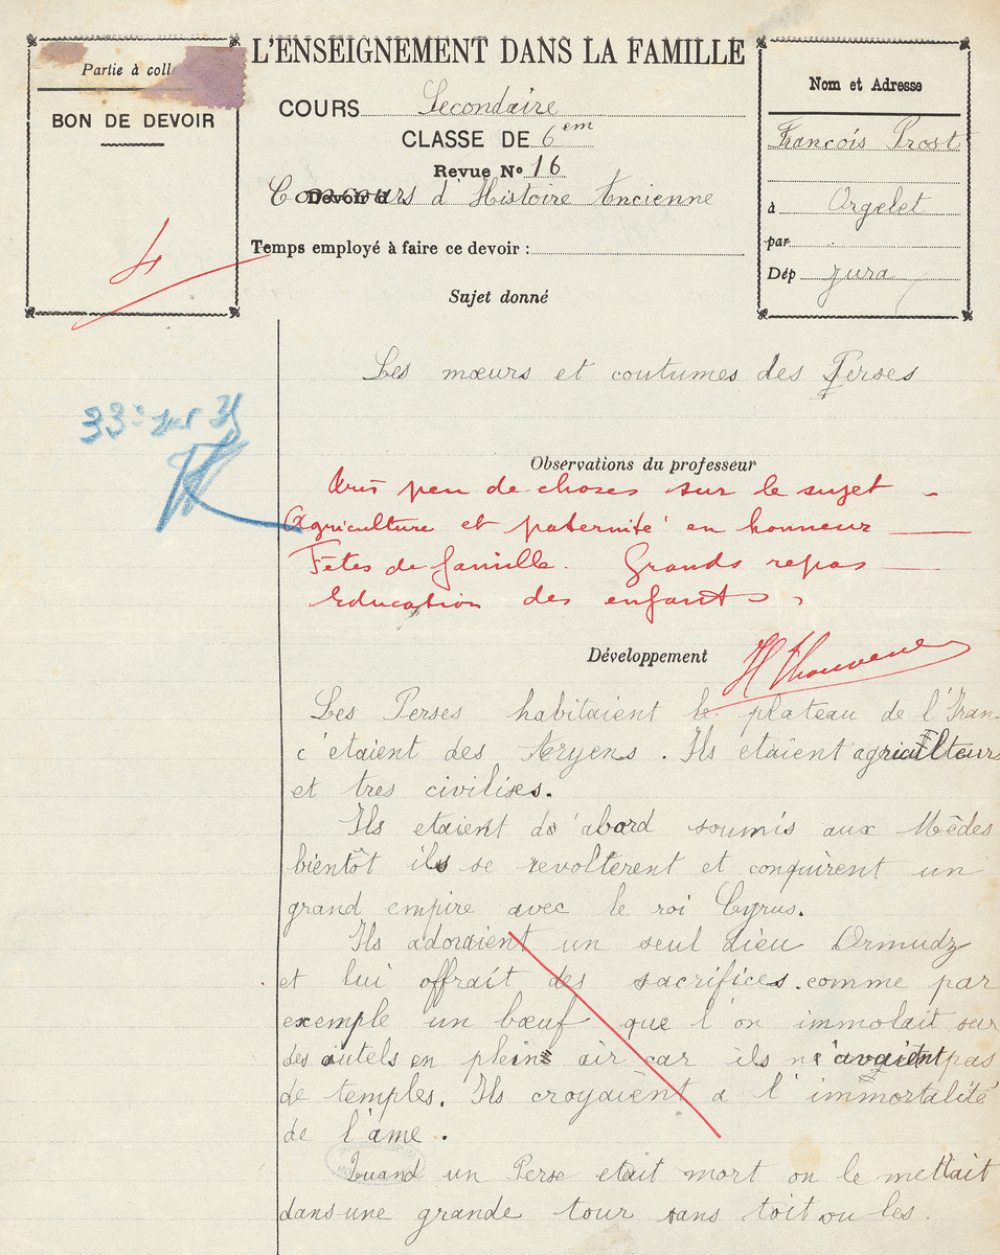 L'ENSEIGNEMENT DANS LA FAMILLE
Partie à coll
BON DE DEVOIR
4
COURS Secondaire
CLASSE DE 6em
Revue No 16
Concours d'Histoire Ancienne
Temps employé à faire ce devoir :
Sujet donné
Nom et Adresse
Francois Prost
à Orgelet
par
Dép Jura
Les mœurs et coutumes des Perses
33e sur 35
Observations du professeur
très peu de choses sur le sujet -
Agriculture et paternité en honneur
Fêtes de famille. Grands repas
Education des enfants
Développement
H Thouvenel
Les Perses habitaient le plateau de l'Iran
c'etaient des Aryens. Ils etaient agriculteurs
et tres civilises.
Ils etaient d'abord soumis aux Mèdes
bientôt ils se revolterent et conquirent un
grand empire avec le roi Cyrus.
Ils adoraient un seul Dieu Ormudz
et lui offrait des sacrifices. comme par
exemple un bœuf que l'on immolait sur
des autels en plein air car ils n'avaient pas
de temples. Ils croyaient a l'immortalité
de l'ame.
Quand un Perse etait mort on le mettait
dans une grande tour sans toit ou les.